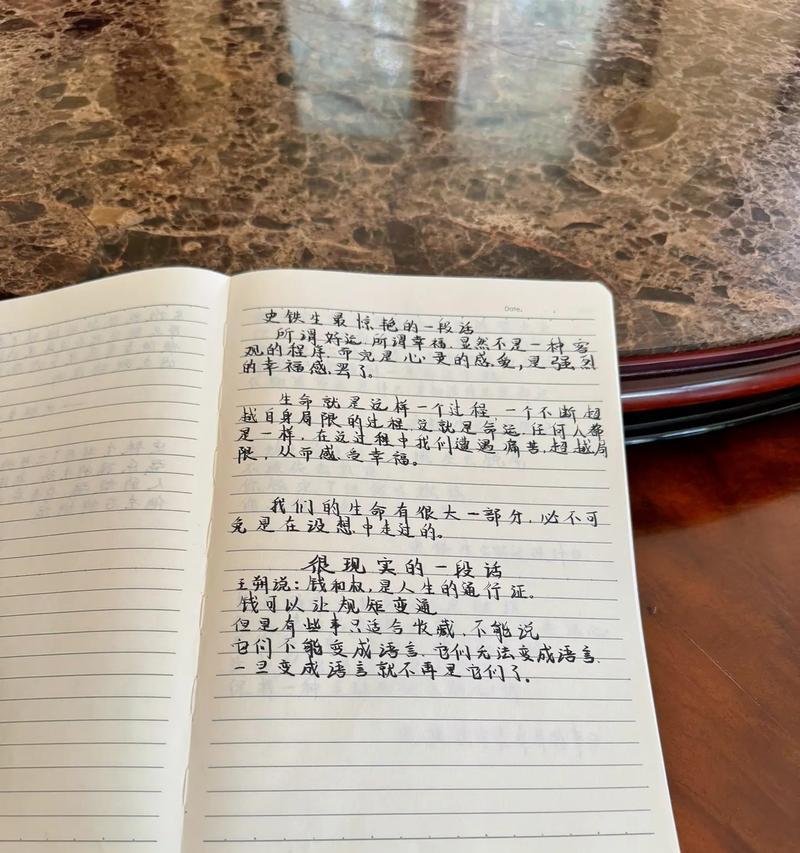 Date.
史铁生最惊艳的一段话
所谓好运,所谓幸福,显然不是一种客
观的程序,而完是心灵的感受,是强烈
的幸福感罢了。
生命就是这样一个过程,一个不断超
越自身局限的过程,这就是命运,任何人都
是一样,在这过程中我们遭遇痛苦,超越局
限,从而感受幸福。
我们的生命有很大一部分,必不可
免是在设想中走过的。
很现实的一段话
王朔说:钱和权,是人生的通行证。
钱可以让规矩变通
但是有些事只适合收藏,不能说
它们不能变成语言,它们无法变成语言,
一旦变成语言就不再是它们了。